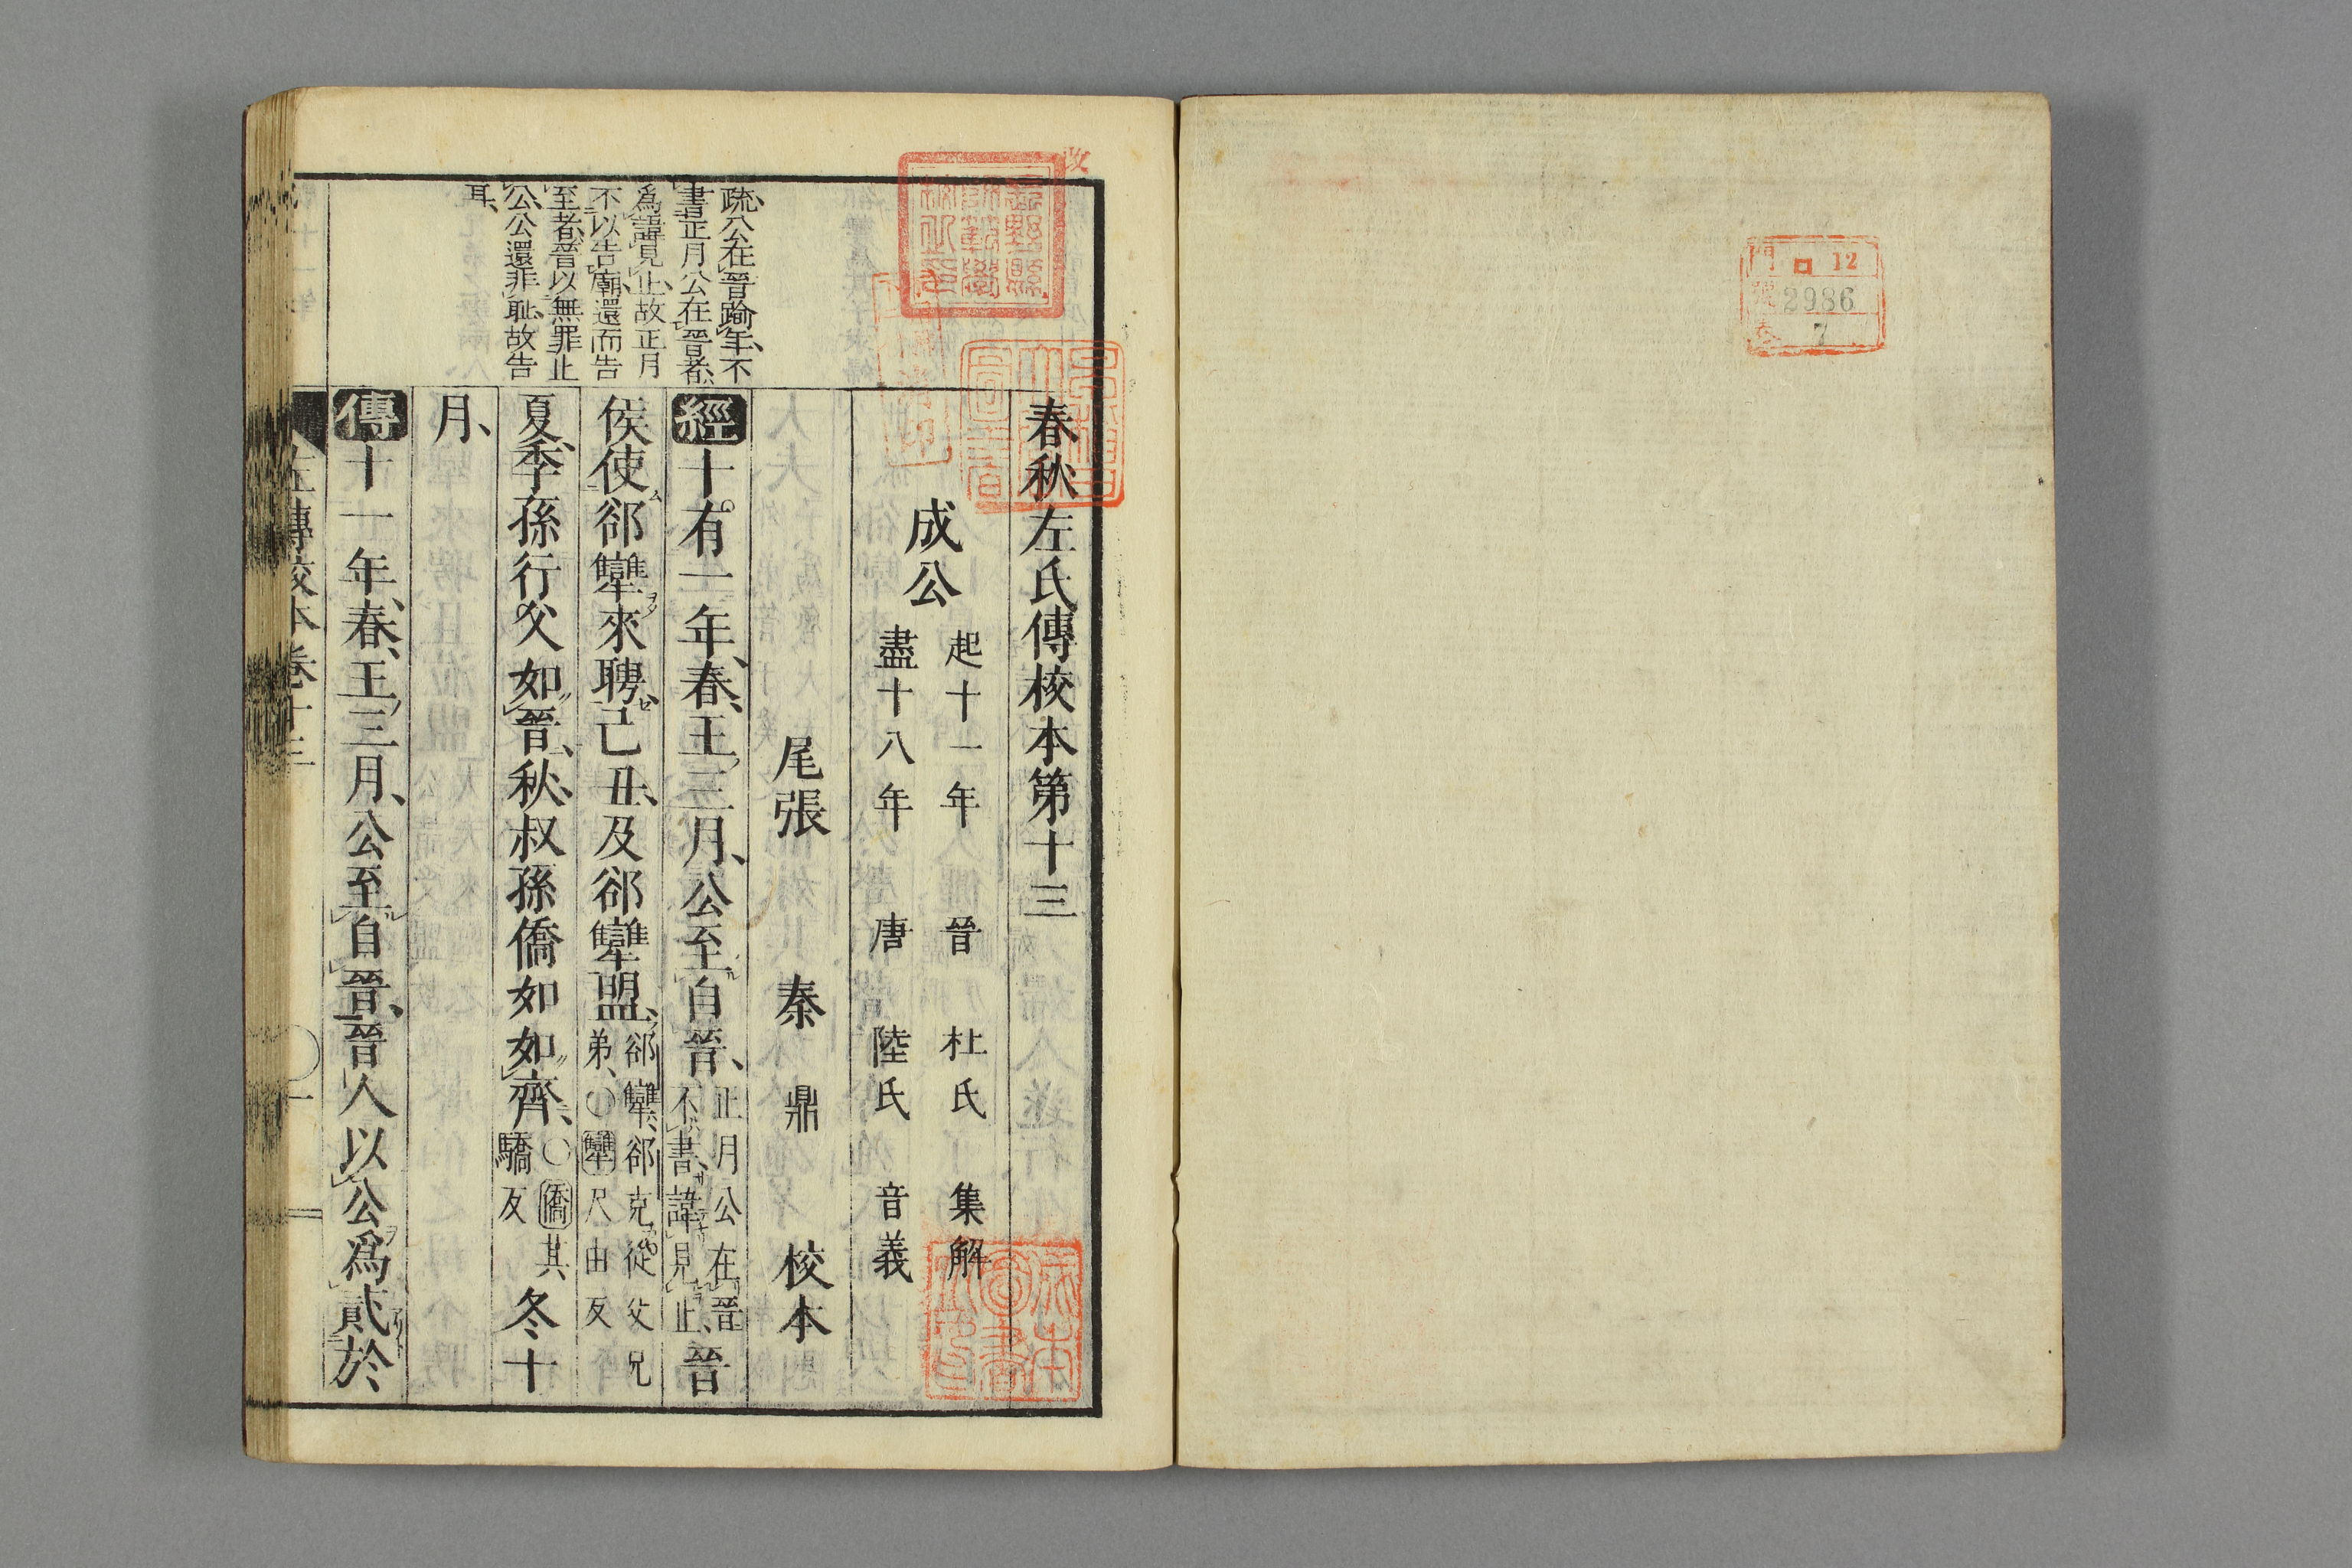 門 12
號 2986
卷 7
改
春秋左氏傳校本第十三
成公
起十一年
盡十八年
晉 杜氏 集解
唐 陸氏 音義
尾張 秦 鼎 校本
疏公在晉踰年不
書正月公在晉者
爲諱見止故正月
不以告廟還而告
至者晉以無罪止
公公還非恥故告
耳
經十有一年春王三月公至自晉正月公在晉不書諱見止晉
侯使郤犨來聘己丑及郤犨盟郤犨郤克從父兄弟〇犨尺由反
夏季孫行父如晉秋叔孫僑如如齊〇僑其驕反冬十
月
傳十一年春王三月公至自晉晉人以公爲貳於
左傳校本卷十三 一